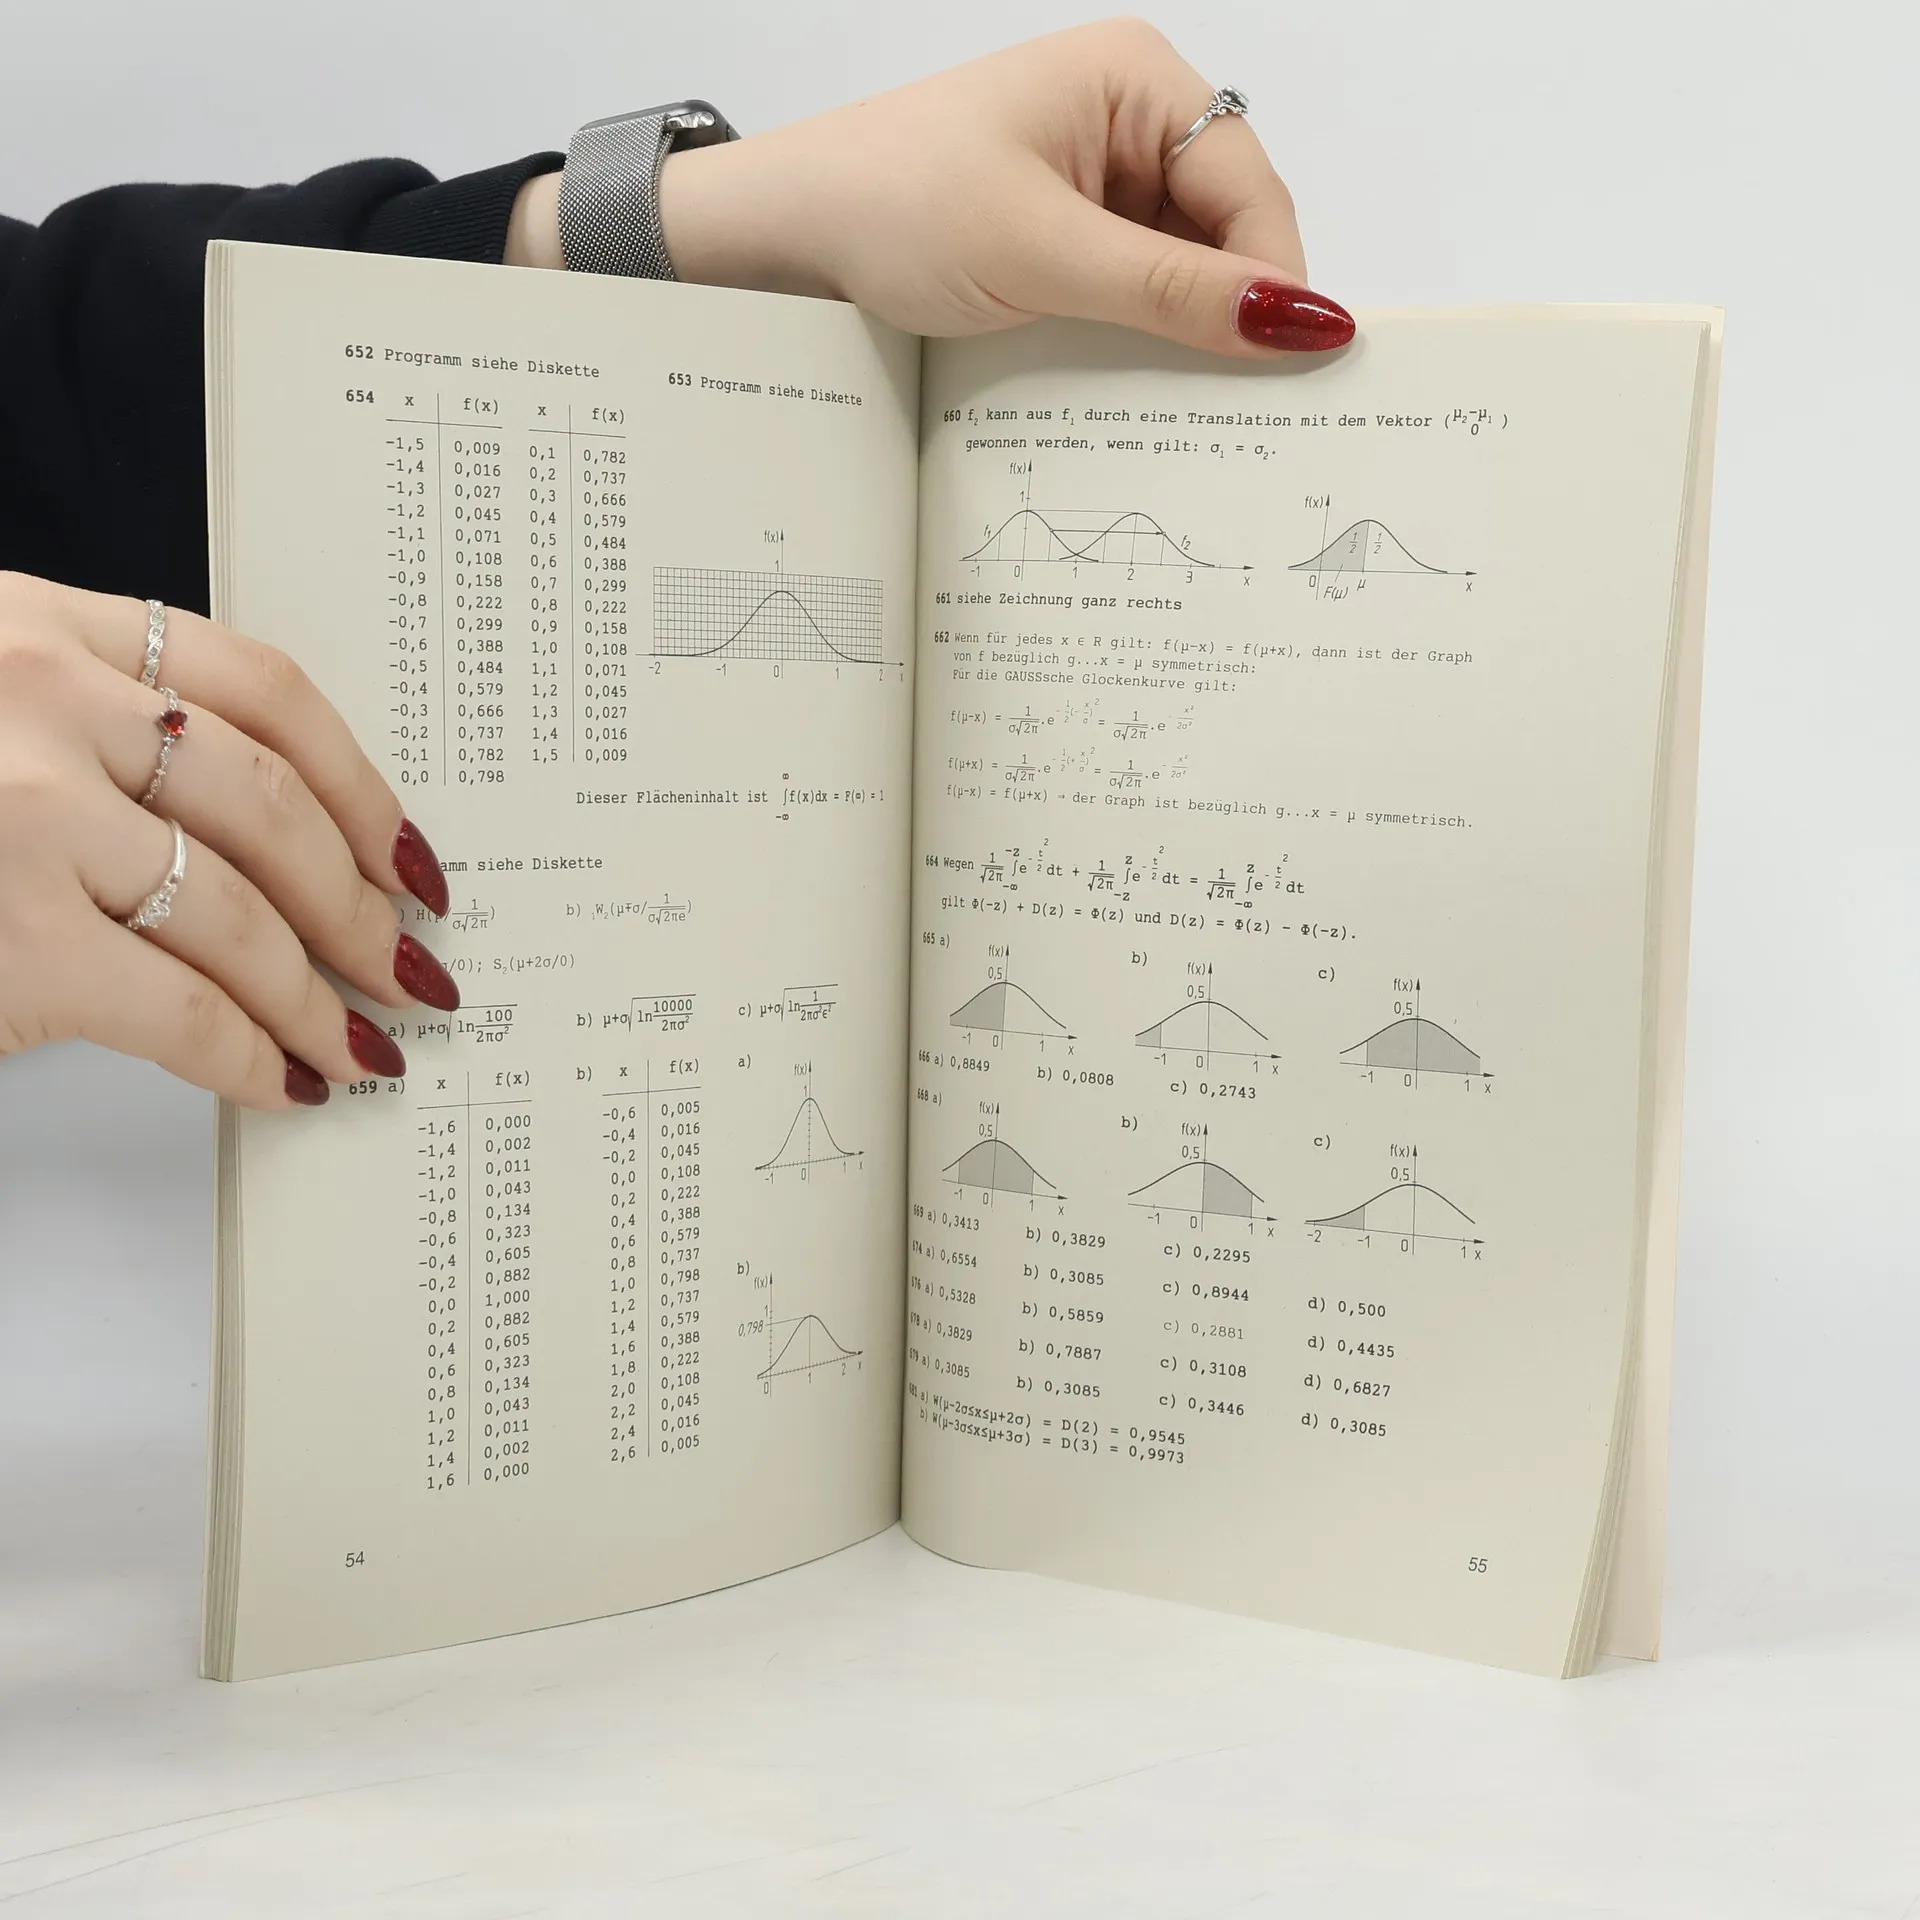 652 Programm siehe Diskette
653 Programm siehe Diskette
654 x f(x) x f(x)
-1,5 0,009 0,1 0,782
-1,4 0,016 0,2 0,737
-1,3 0,027 0,3 0,666
-1,2 0,045 0,4 0,579
-1,1 0,071 0,5 0,484
-1,0 0,108 0,6 0,388
-0,9 0,158 0,7 0,299
-0,8 0,222 0,8 0,222
-0,7 0,299 0,9 0,158
-0,6 0,388 1,0 0,108
-0,5 0,484 1,1 0,071
-0,4 0,579 1,2 0,045
-0,3 0,666 1,3 0,027
-0,2 0,737 1,4 0,016
-0,1 0,782 1,5 0,009
0,0 0,798
f(x)
1
-2 -1 0 1 2 x
Dieser Flächeninhalt ist ∫_{-∞}^{∞} f(x)dx = F(∞) = 1
siehe Diskette
H(μ/1/(σ√2π)) b) ₁W₂(μ∓σ/1/(σ√2πe))
/0); S₂(μ+2σ/0)
a) μ+σ√(ln 100/(2πσ²)) b) μ+σ√(ln 10000/(2πσ²)) c) μ+σ√(ln 1/(2πσ²ε²))
659 a) x f(x) b) x f(x)
-1,6 0,000 -0,6 0,005
-1,4 0,002 -0,4 0,016
-1,2 0,011 -0,2 0,045
-1,0 0,043 0,0 0,108
-0,8 0,134 0,2 0,222
-0,6 0,323 0,4 0,388
-0,4 0,605 0,6 0,579
-0,2 0,882 0,8 0,737
0,0 1,000 1,0 0,798
0,2 0,882 1,2 0,737
0,4 0,605 1,4 0,579
0,6 0,323 1,6 0,388
0,8 0,134 1,8 0,222
1,0 0,043 2,0 0,108
1,2 0,011 2,2 0,045
1,4 0,002 2,4 0,016
1,6 0,000 2,6 0,005
a)
f(x)
1
-1 0 1 x
b)
f(x)
1
0,798
0 1 2 x
54
660 f₂ kann aus f₁ durch eine Translation mit dem Vektor (μ₂-μ₁ 0)
gewonnen werden, wenn gilt: σ₁ = σ₂.
f(x)
1
f₁ f₂
-1 0 1 2 3 x
f(x)
1/2 1/2
0 F(μ) μ x
661 siehe Zeichnung ganz rechts
662 Wenn für jedes x ∈ R gilt: f(μ-x) = f(μ+x), dann ist der Graph
von f bezüglich g...x = μ symmetrisch:
Für die GAUSSsche Glockenkurve gilt:
f(μ-x) = 1/(σ√2π).e^(-1/2(-x/σ)²) = 1/(σ√2π).e^(-x²/2σ²)
f(μ+x) = 1/(σ√2π).e^(-1/2(+x/σ)²) = 1/(σ√2π).e^(-x²/2σ²)
f(μ-x) = f(μ+x) → der Graph ist bezüglich g...x = μ symmetrisch.
664 Wegen 1/√2π ∫_{-∞}^{-z} e^(-t²/2) dt + 1/√2π ∫_{-z}^{z} e^(-t²/2) dt = 1/√2π ∫_{-∞}^{z} e^(-t²/2) dt
gilt Φ(-z) + D(z) = Φ(z) und D(z) = Φ(z) - Φ(-z).
665 a) b) c)
f(x) f(x) f(x)
0,5 0,5 0,5
-1 0 1 x -1 0 1 x -1 0 1 x
666 a) 0,8849 b) 0,0808 c) 0,2743
668 a) b) c)
f(x) f(x) f(x)
0,5 0,5 0,5
-1 0 1 x -1 0 1 x -2 -1 0 1 x
669 a) 0,3413 b) 0,3829 c) 0,2295
674 a) 0,6554 b) 0,3085 c) 0,8944 d) 0,500
676 a) 0,5328 b) 0,5859 c) 0,2881 d) 0,4435
678 a) 0,3829 b) 0,7887 c) 0,3108 d) 0,6827
679 a) 0,3085 b) 0,3085 c) 0,3446 d) 0,3085
681 a) W(μ-2σ≤x≤μ+2σ) = D(2) = 0,9545
b) W(μ-3σ≤x≤μ+3σ) = D(3) = 0,9973
55